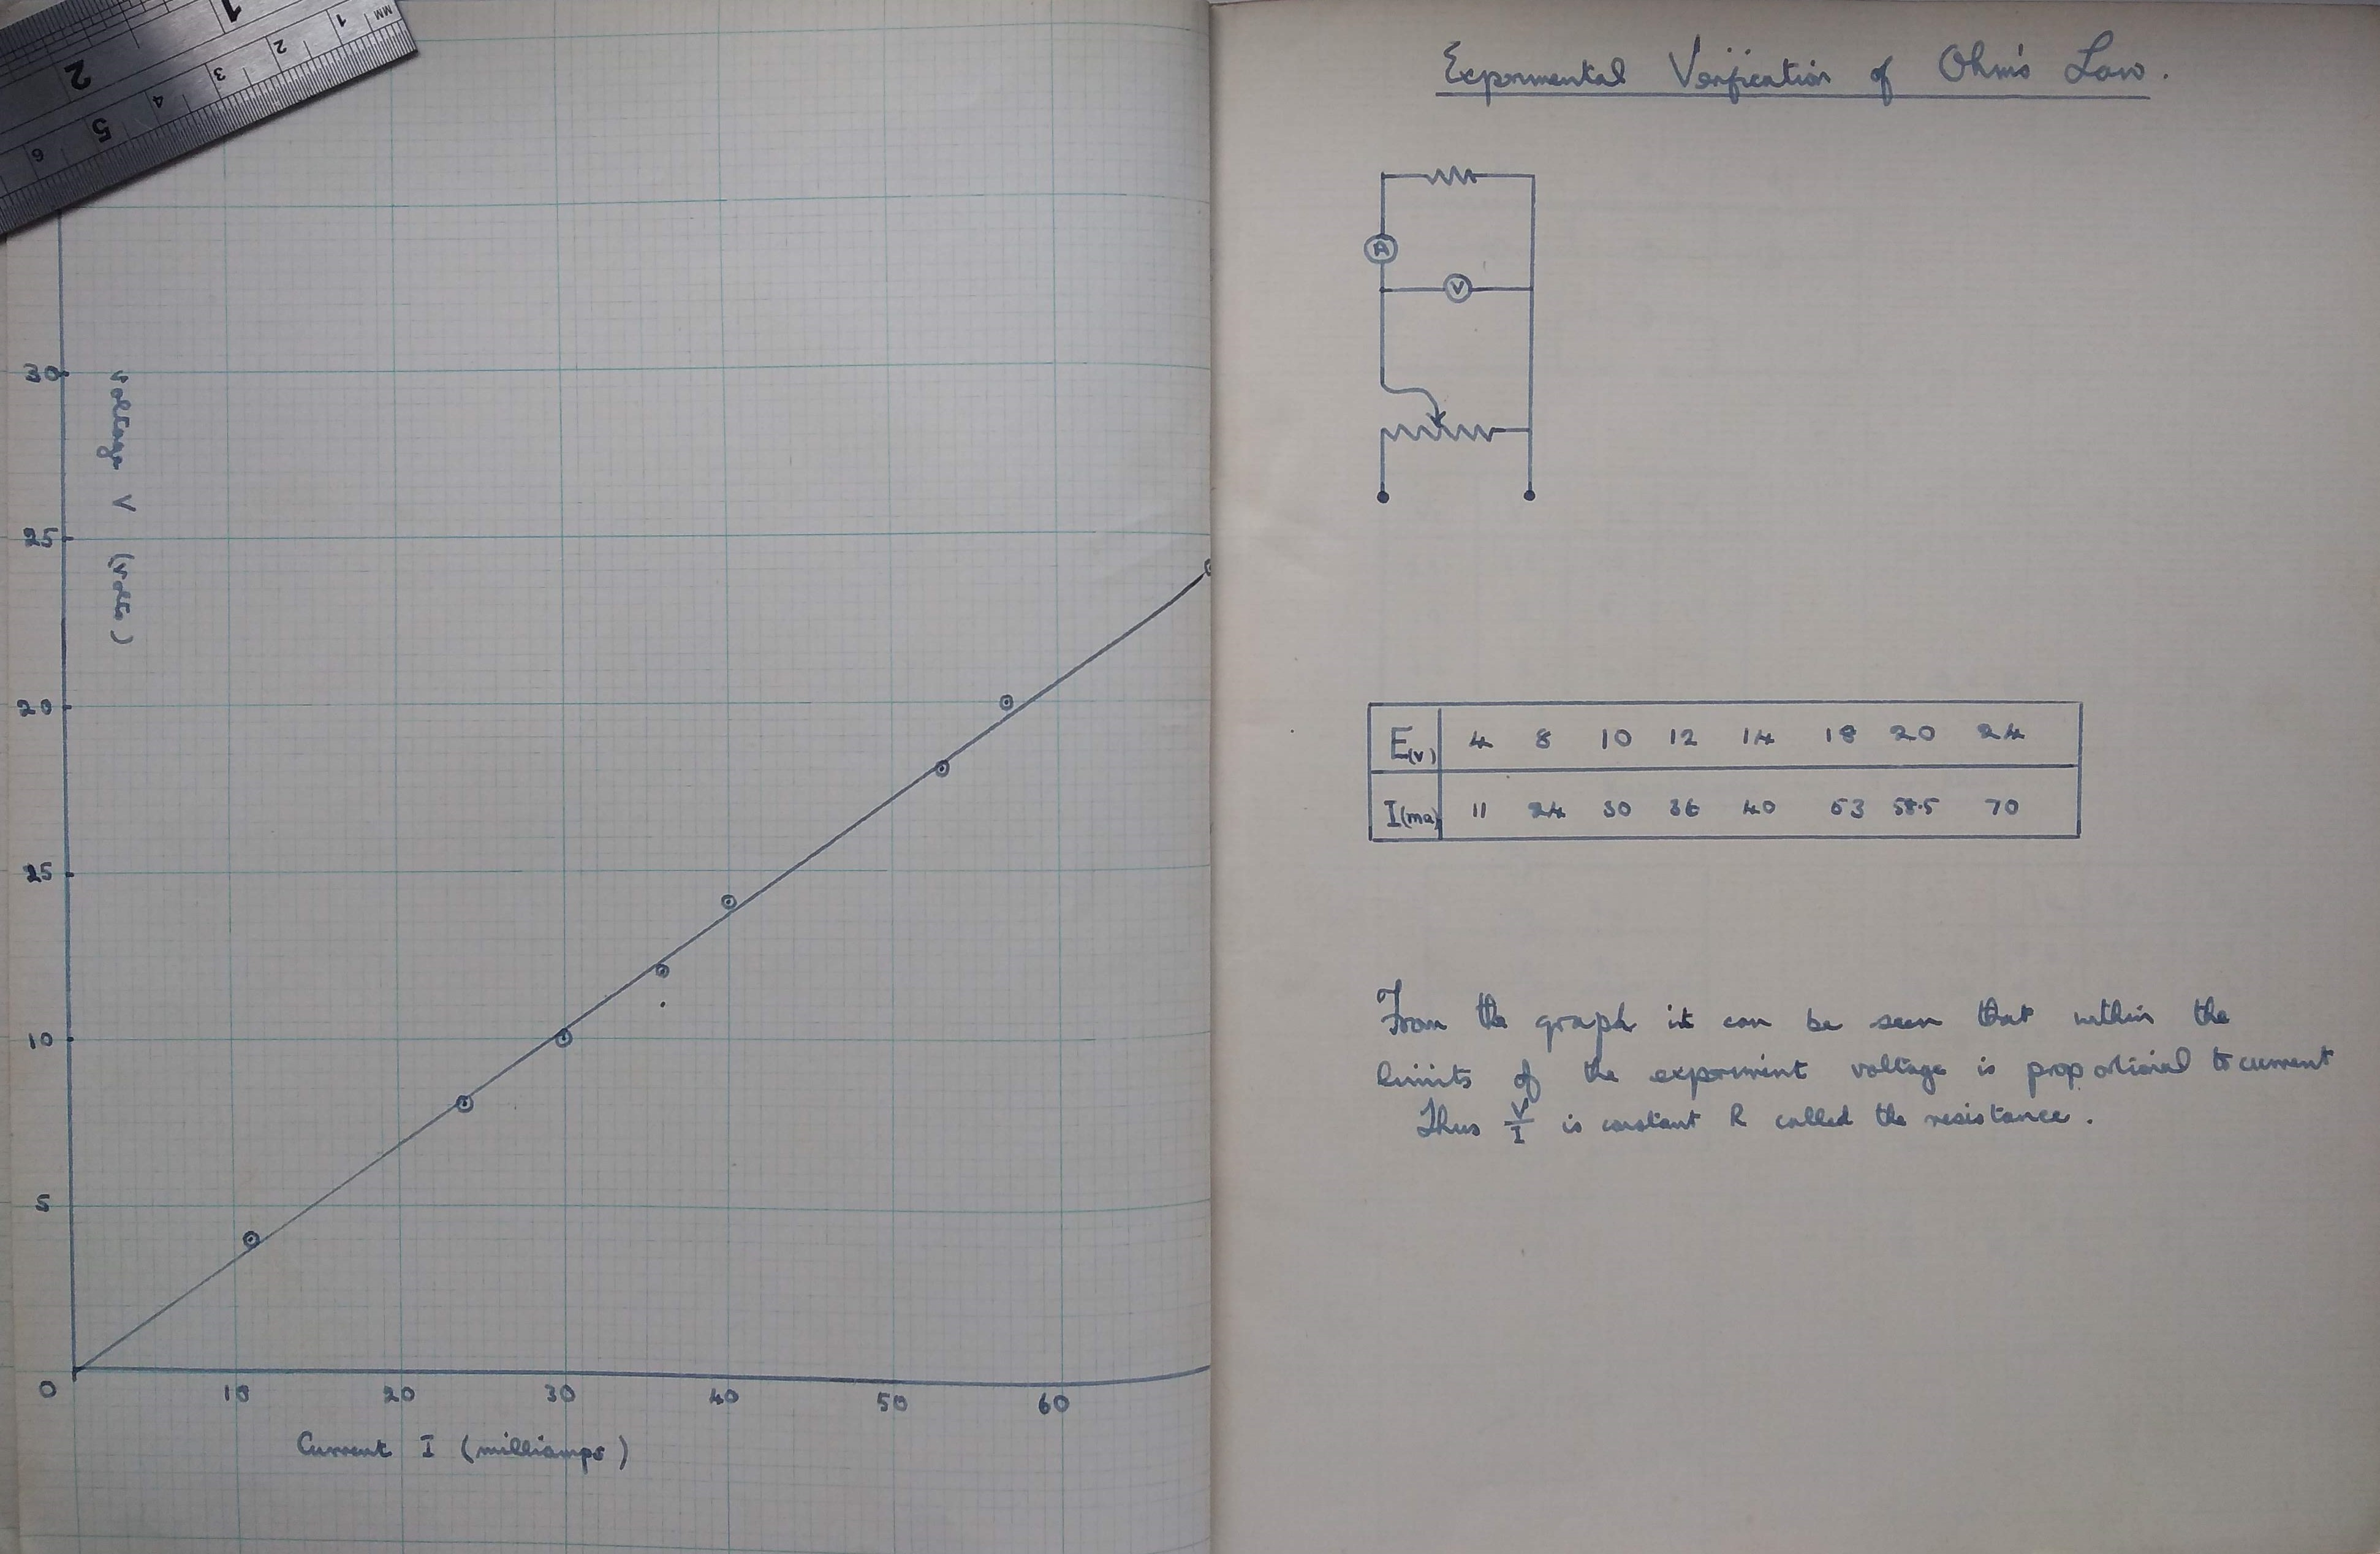 MM
1
2
3
4
5
6
1
2
30
25
20
25
10
5
0
Voltage V (volts)
10
20
30
40
50
60
Current I (milliamps)
Exprimental Verification of Ohm's Law.
A
V
E(v) 4 8 10 12 14 18 20 24
I(ma) 11 24 30 36 40 53 58.5 70
From the graph it can be seen that within the
limits of the expriment voltage is proportional to current
Thus V/I is constant R called the resistance.